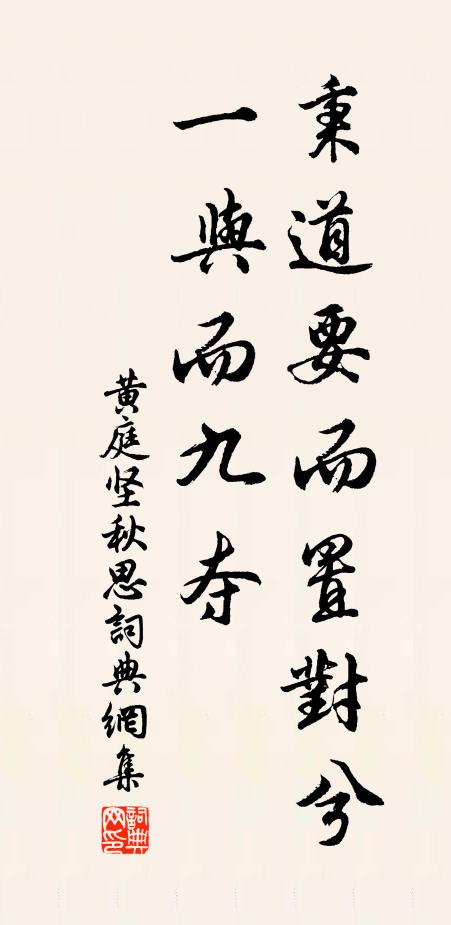 秉道要而置對兮
一與而九夺
黄庭坚秋思詞典網集
詞典
网印